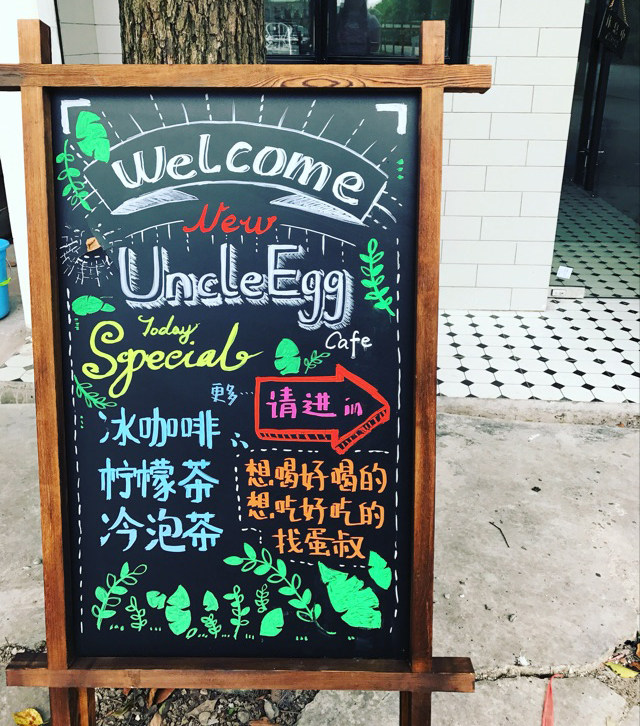 Welcome
New
UncleEgg
Cafe
Today
Special
更…
请进 in
冰咖啡
柠檬茶
冷泡茶
想喝好喝的
想吃好吃的
找蛋叔